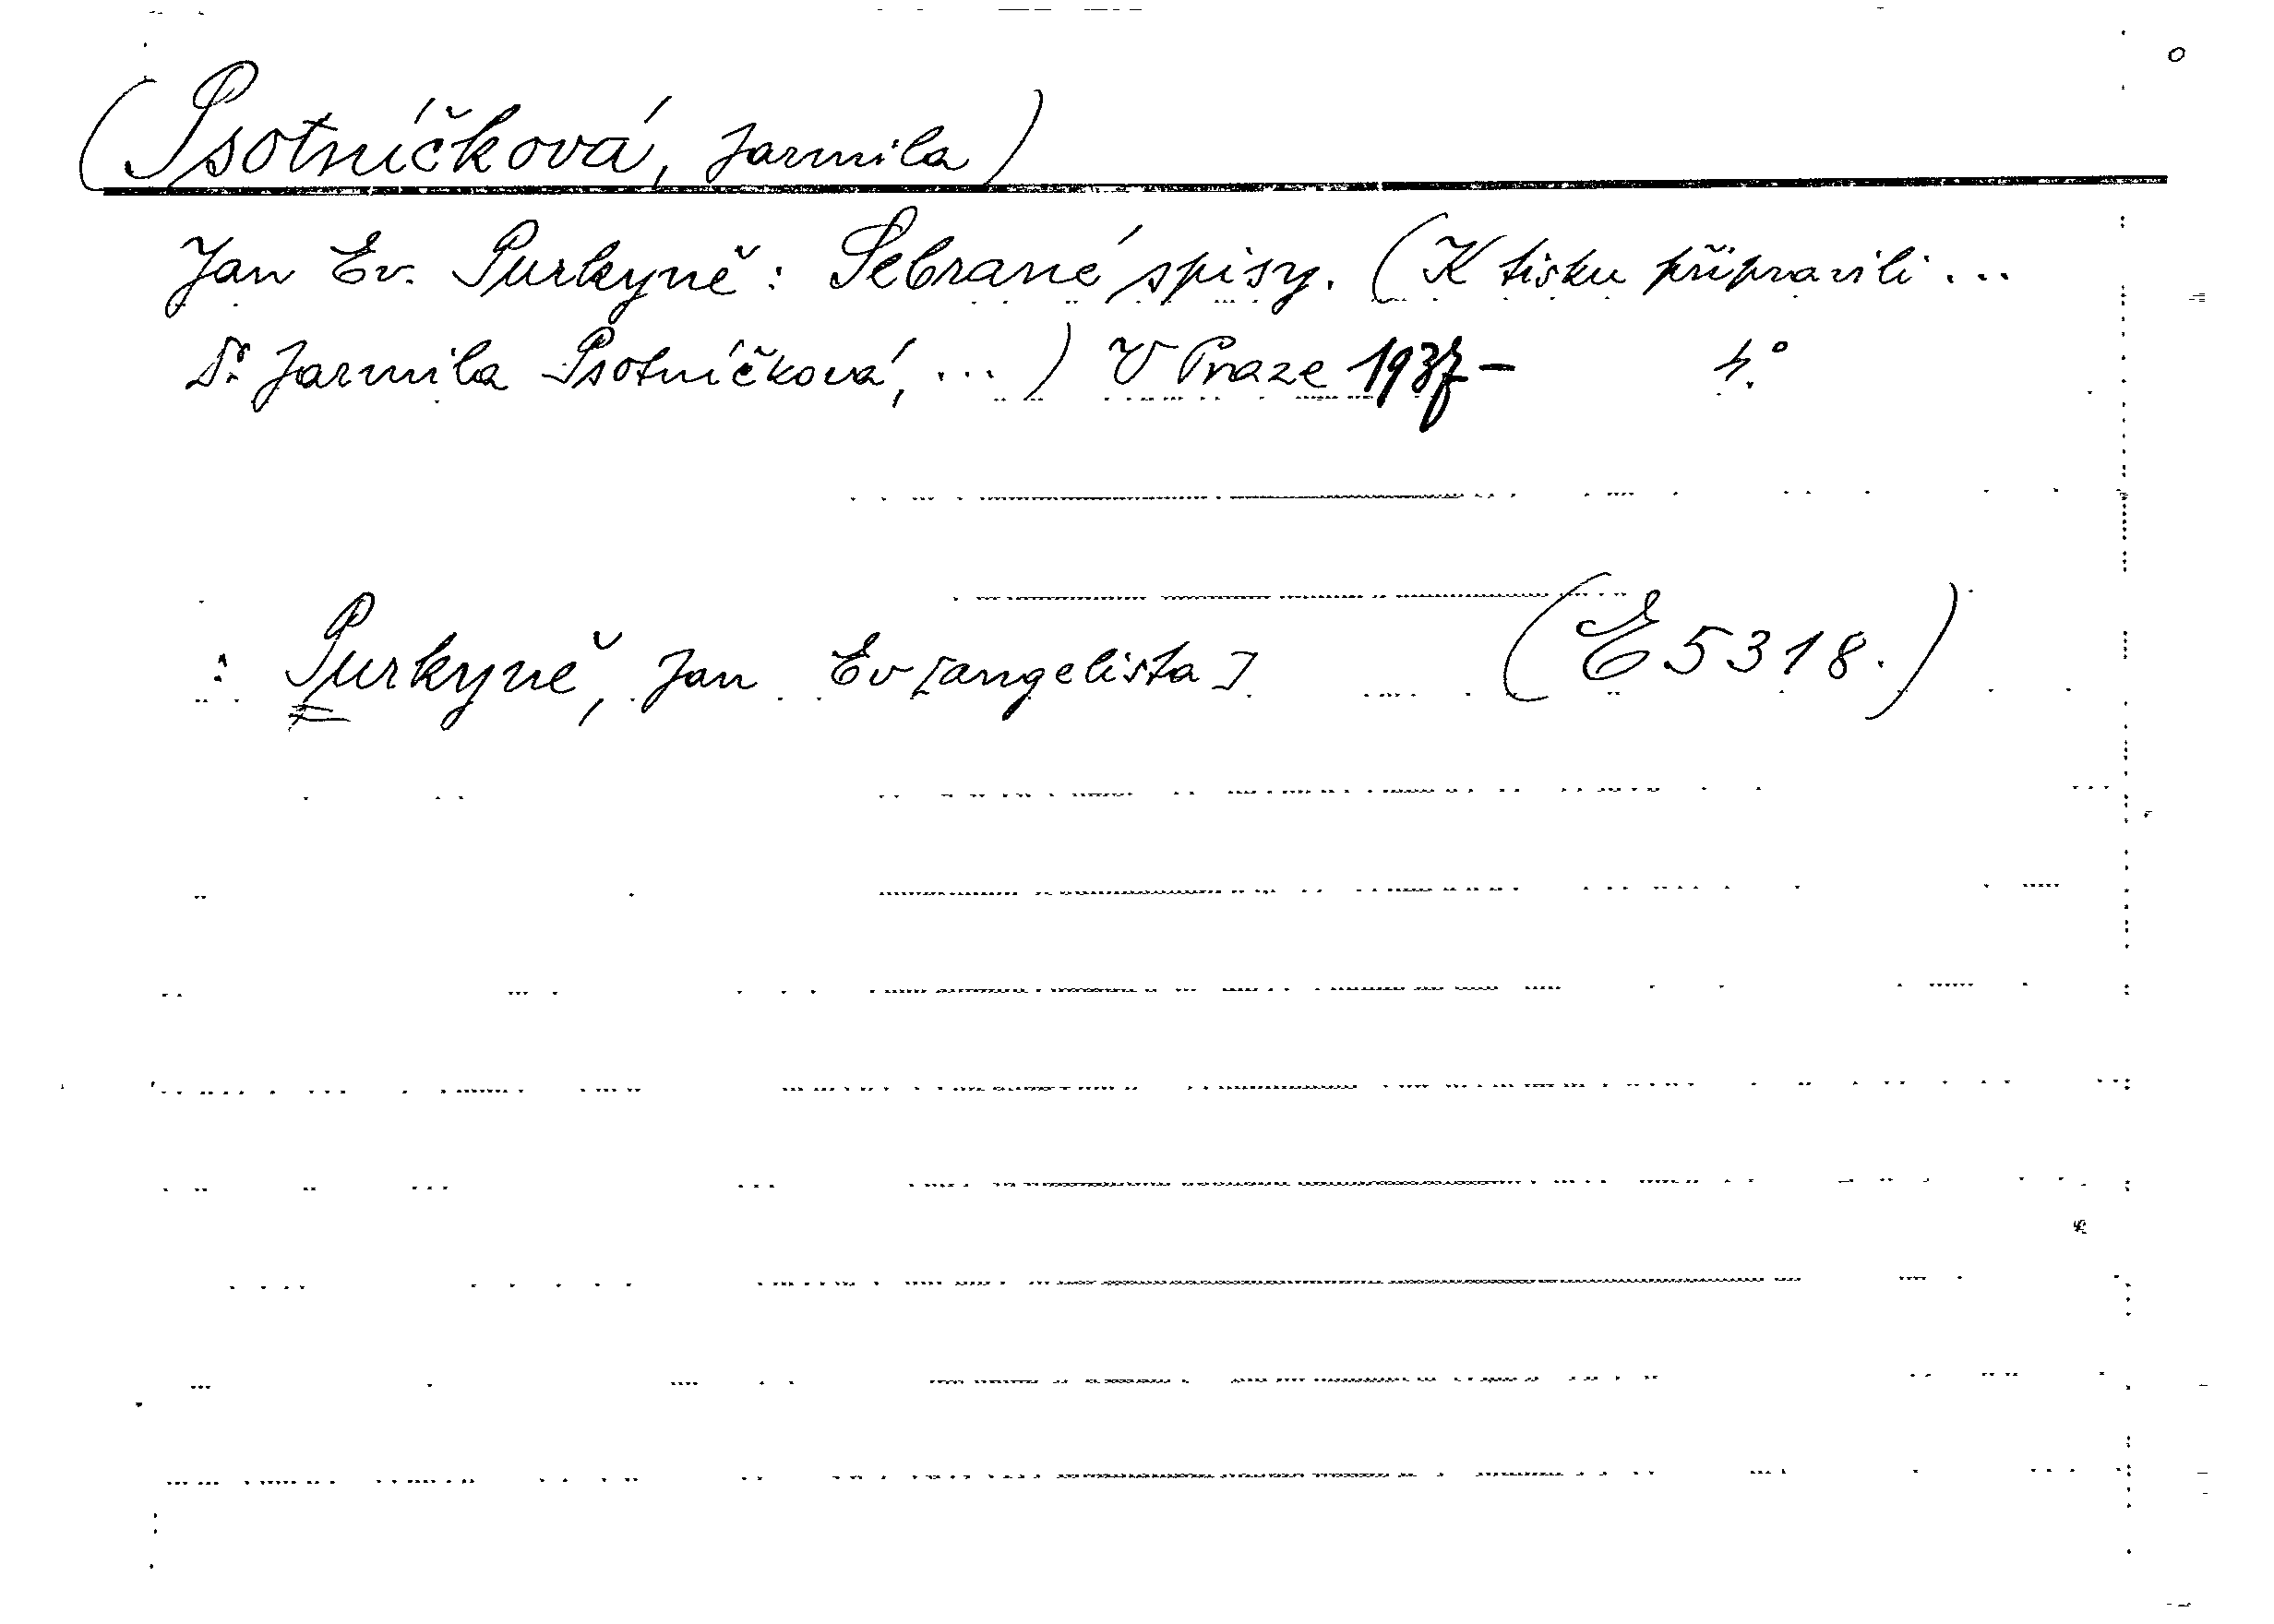 (Psotníčková, Jarmila)
Jan Ev. Purkyně: Sebrané spisy. (K tisku připravili ...
Dr. Jarmila Psotníčková, ...) V Praze 1937- 4.°
: Purkyně, Jan Ev[angelista] (E 5318.)